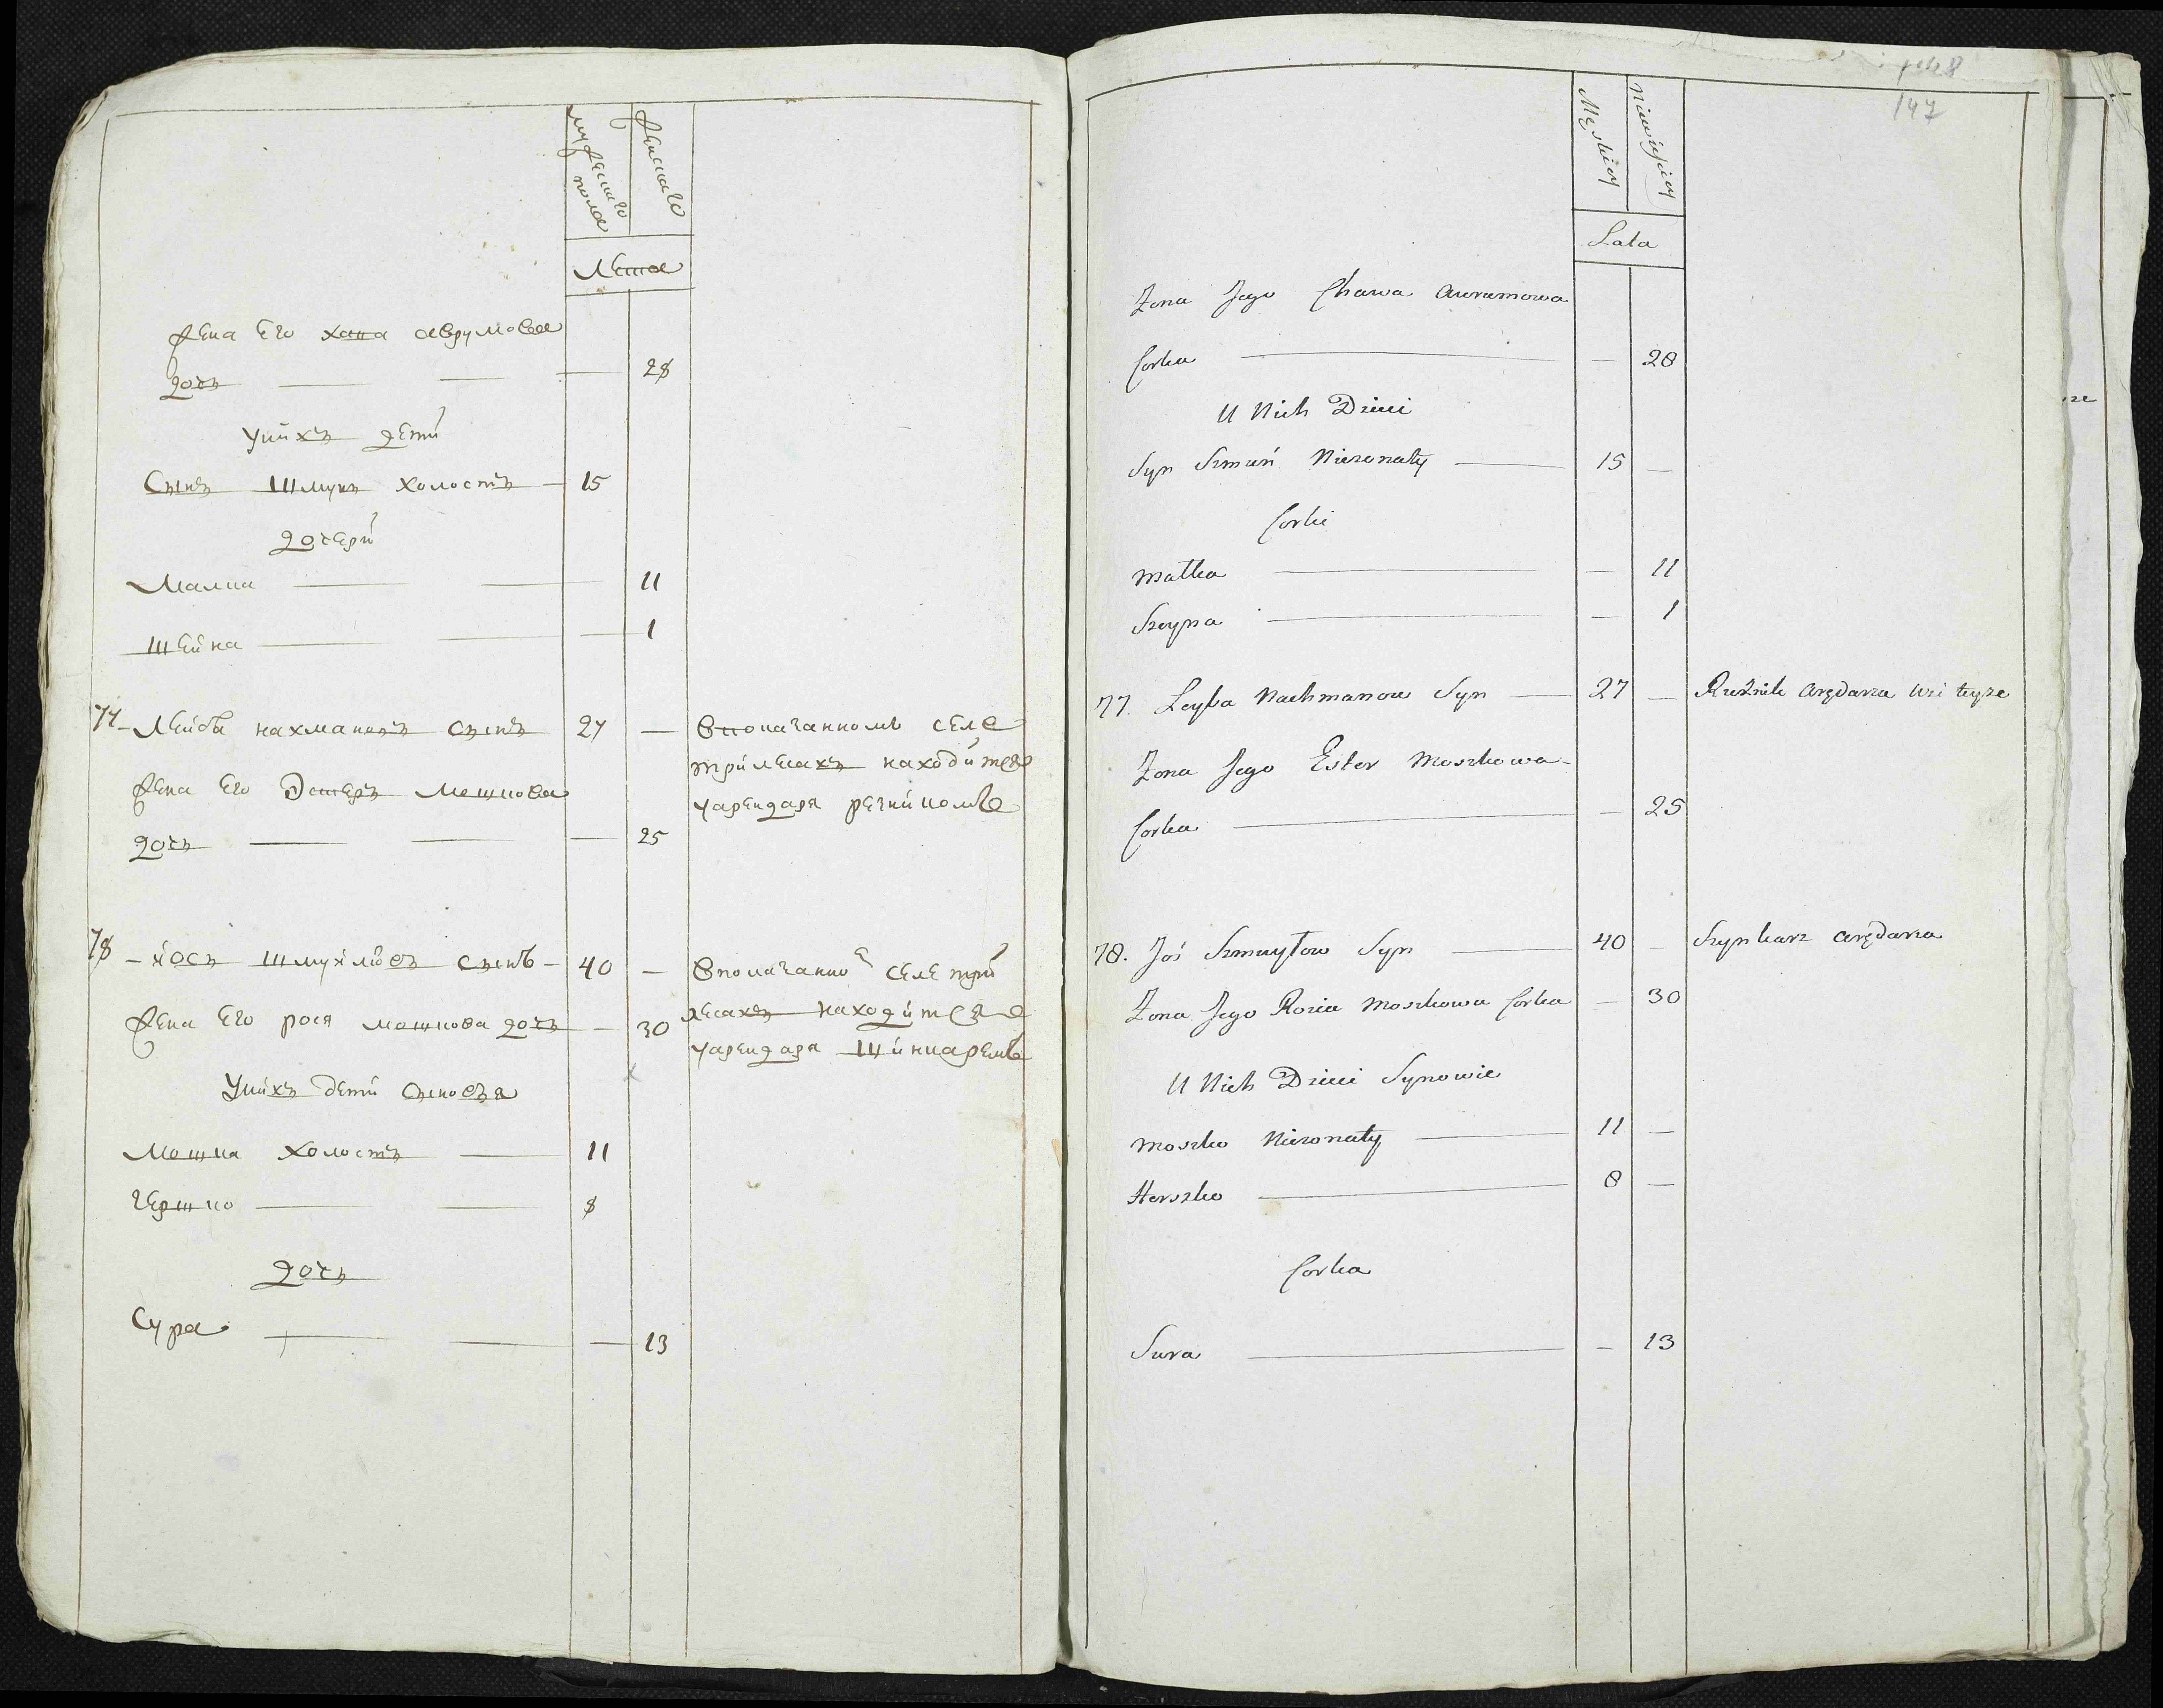 мужеска го пола
женска го
Лета
Жена Его хана аврумова
дочь — — — 28
Унихъ дети
Сынъ Шмунь холостъ — 15
дочери
Малка — — — 11
Шейна — — — 1
77 – Лейба нахмановъ сынъ 27 — Впоказанномъ селе
трилесахъ находитса
Жена Его Эстеръ Мошкова
уарендаря резникомъ
дочь — — — 25
78 – Йось Шмуйловъ сынъ – 40 — Впоказанно селе три
лесахъ находитса
Жена Его рося мошкова дочь — 30
уарендаря Шинкаремъ
Унихъ дети сыновья
Мошка холостъ — 11
гершко — — 8
дочь
Сура — — — 13
148
147
Męskiey
Niewiesciey
Lata
Zona Jego Chawa Awramowa
Corka — — 28
U Nich Dzieci
Syn Szmuń Niezonaty — 15 —
Corki
Malka — — 11
Szeyna — — 1
77. Leyba Nachmanow Syn — 27 — Rzeźnik Arędarza
Zona Jego Ester Moszkowa
Corka — — 25
78. Joś Szmuylow Syn — 40 — Szynkarz Arędarza
Zona Jego Rozia Moszkowa Corka — 30
U Nich Dzieci Synowie
Moszko Niezonaty — 11 —
Herszko — 8 —
Corka
Sura — – 13